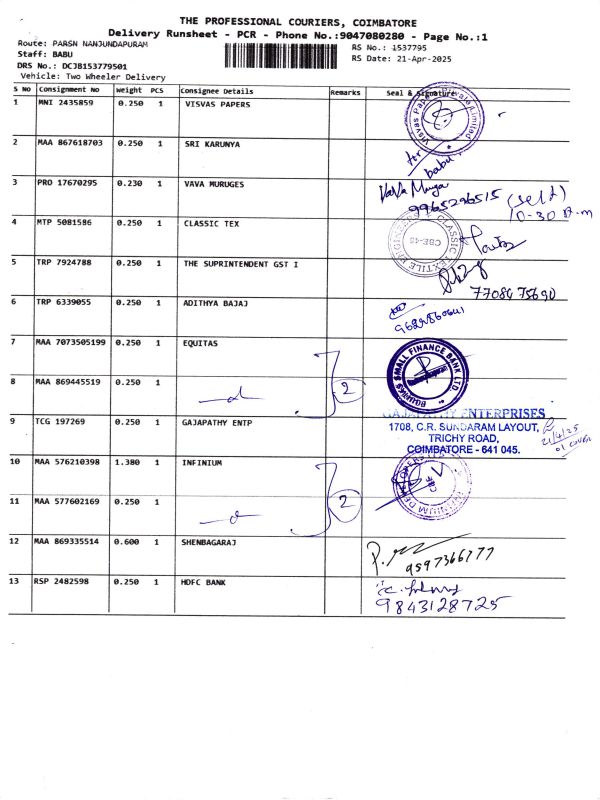 THE PROFESSIONAL COURIERS, COIMBATORE
Delivery Runsheet - PCR - Phone No.:9047080280 - Page No.:1
Route: PARSN NANJUNDAPURAM
Staff: BABU
DRS No.: DCJB153779501
Vehicle: Two Wheeler Delivery
RS No.: 1537795
RS Date: 21-Apr-2025
S No Consignment No Weight PCS Consignee Details Remarks Seal & Signature
1 MNI 2435859 0.250 1 VISVAS PAPERS
2 MAA 867618703 0.250 1 SRI KARUNYA
for babu.
3 PRO 17670295 0.230 1 VAVA MURUGES
9965296515 (self)
10-30 A.m
4 MTP 5081586 0.250 1 CLASSIC TEX
CBE-45
5 TRP 7924788 0.250 1 THE SUPRINTENDENT GST I
7708475690
6 TRP 6339055 0.250 1 ADITHYA BAJAJ
7 MAA 7073505199 0.250 1 EQUITAS
SMALL FINANCE BANK LTD
8 MAA 869445519 0.250 1
2
9 TCG 197269 0.250 1 GAJAPATHY ENTP
GAJAPATHY ENTERPRISES
1708, C.R. SUNDARAM LAYOUT,
TRICHY ROAD,
COIMBATORE - 641 045.
21/4/25
01 cover
10 MAA 576210398 1.380 1 INFINIUM
CBE
11 MAA 577602169 0.250 1
2
12 MAA 869335514 0.600 1 SHENBAGARAJ
9597366777
13 RSP 2482598 0.250 1 HDFC BANK
9843128725